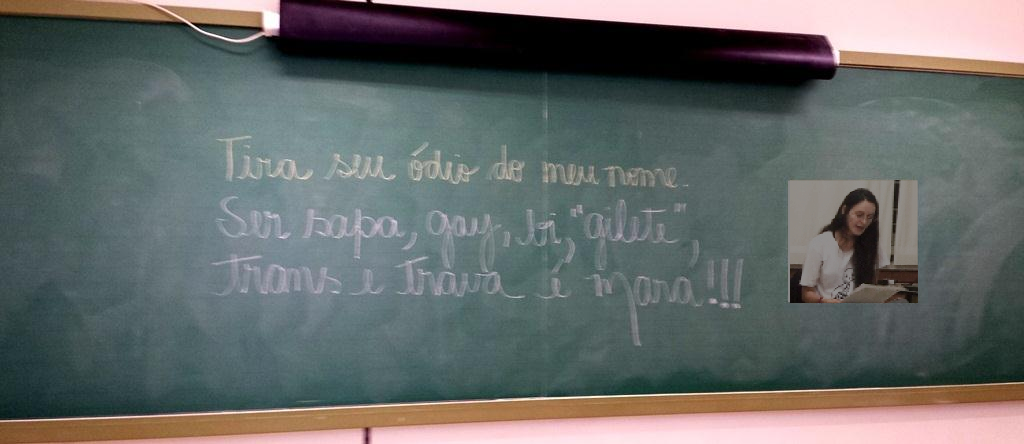 Tira seu ódio do meu nome.
Ser sapa, gay, bi, "gilete",
Trans e Trava é Mara!!!